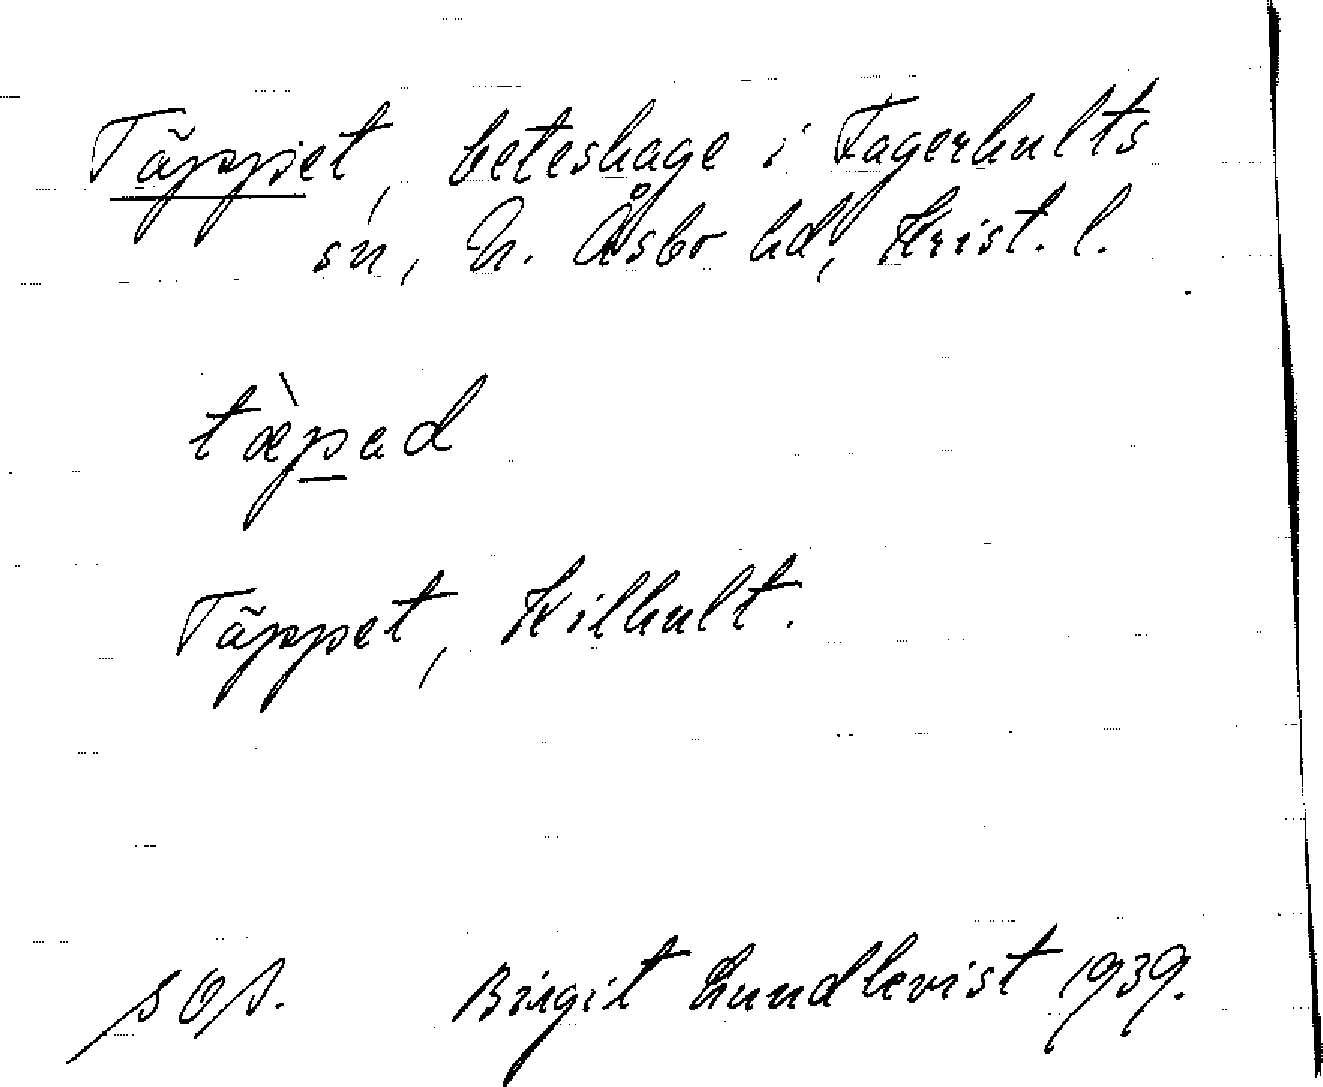 Täppet, beteshage i Fagerhults
sn, N. Åsbo hd, Krist. l.
tæ̀pad
Täppet, Kilhult.
Birgit Lundkvist 1939.